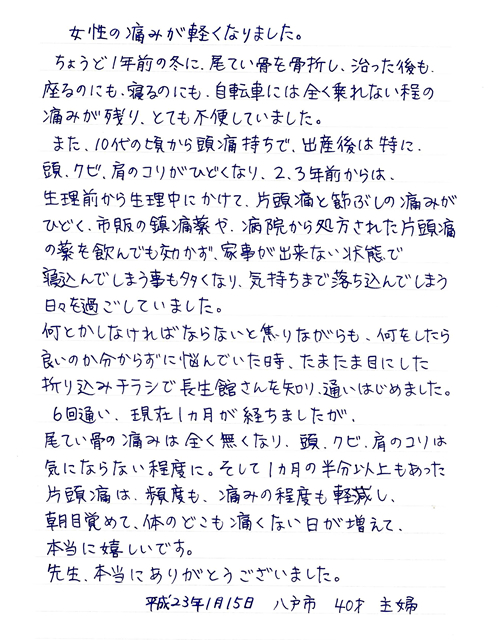 女性の痛みが軽くなりました。
ちょうど1年前の冬に、尾てい骨を骨折し、治った後も、
座るのにも、寝るのにも、自転車には全く乗れない程の
痛みが残り、とても不便していました。
また、10代の頃から頭痛持ちで、出産後は特に、
頭、クビ、肩のコリがひどくなり、2、3年前からは、
生理前から生理中にかけて、片頭痛と節ぶしの痛みが
ひどく、市販の鎮痛薬や、病院から処方された片頭痛
の薬を飲んでも効かず、家事が出来ない状態で
寝込んでしまう事も多くなり、気持ちまで落ち込んでしまう
日々を過ごしていました。
何とかしなければならないと焦りながらも、何をしたら
良いのか分からずに悩んでいた時、たまたま目にした
折り込みチラシで長生館さんを知り、通いはじめました。
6回通い、現在1ヵ月が経ちましたが、
尾てい骨の痛みは全く無くなり、頭、クビ、肩のコリは
気にならない程度に。そして1ヵ月の半分以上もあった
片頭痛は、頻度も、痛みの程度も軽減し、
朝目覚めて、体のどこも痛くない日が増えて、
本当に嬉しいです。
先生、本当にありがとうございました。
平成23年1月15日 八戸市 40才 主婦